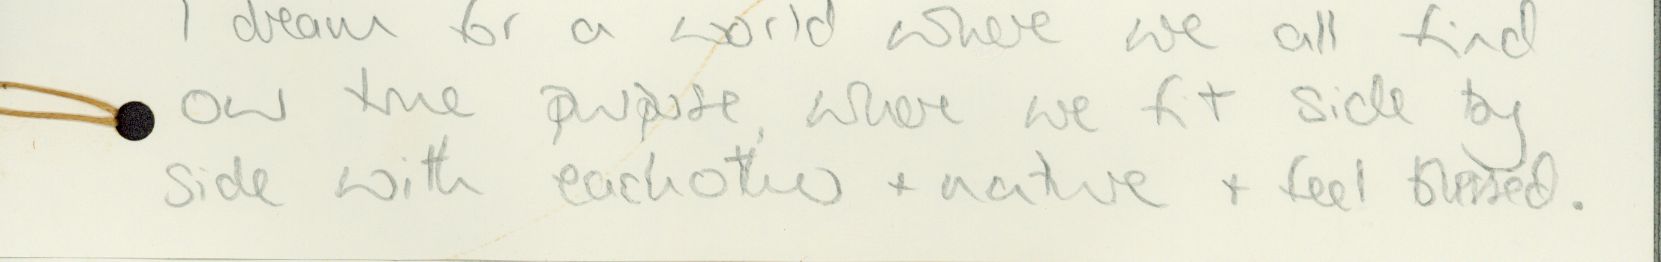 I dream for a world where we all find
our true purpose, where we fit side by
side with eachother + nature + feel blessed.